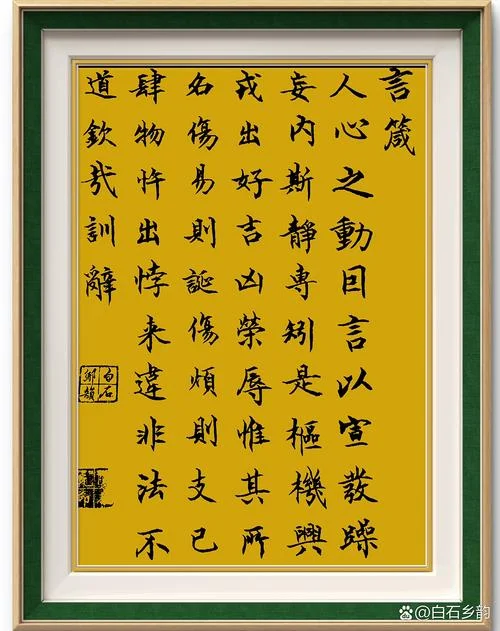 言箴
人心之動囙言以宣發躁
妄内斯靜專矧是樞機興
戎出好吉凶榮辱惟其所
名傷易則誕傷煩則支已
肆物忤出悖来違非法不
道欽哉訓辭
白石鄉韻
@白石乡韵